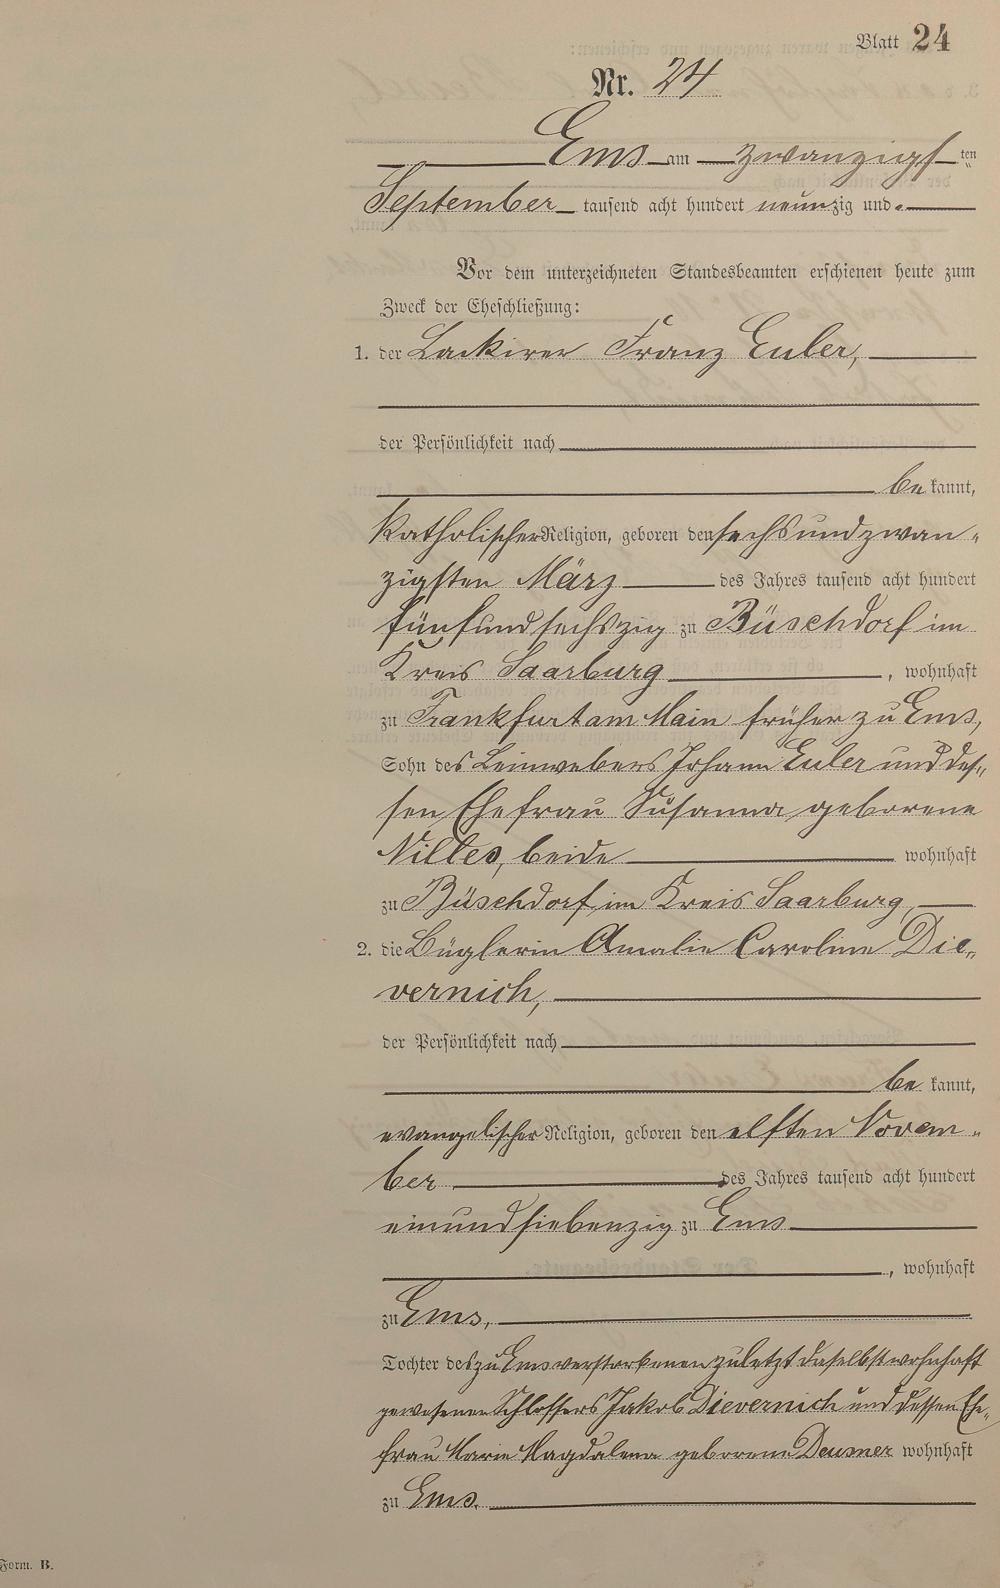 Blatt 24
Nr. 24
Ems am zwanzigsten
September tausend acht hundert neunzig und
Vor dem unterzeichneten Standesbeamten erschienen heute zum
Zweck der Eheschließung:
1. der Lackirer Franz Euler,
der Persönlichkeit nach
bekannt,
katholischer Religion, geboren den sechsundzwan-
zigsten März des Jahres tausend acht hundert
fünfundsechszig zu Büschdorf im
Kreis Saarburg, wohnhaft
zu Frankfurt am Main früher zu Ems,
Sohn des Leinwebers Johann Euler und des-
sen Ehefrau Susanna geborene
Nilles, beide wohnhaft
zu Büschdorf im Kreis Saarburg
2. die Büglerin Amalie Caroline Die-
vernich,
der Persönlichkeit nach
bekannt,
evangelischer Religion, geboren den elften Novem-
ber des Jahres tausend acht hundert
einundsiebenzig zu Ems
, wohnhaft
zu Ems,
Tochter des zu Ems verstorbenen zuletzt daselbst wohnhaft
gewesenen Schlossers Jakob Dievernich und dessen Ehe-
frau Marie Magdalena geborene Deusner wohnhaft
zu Ems.
Form. B.